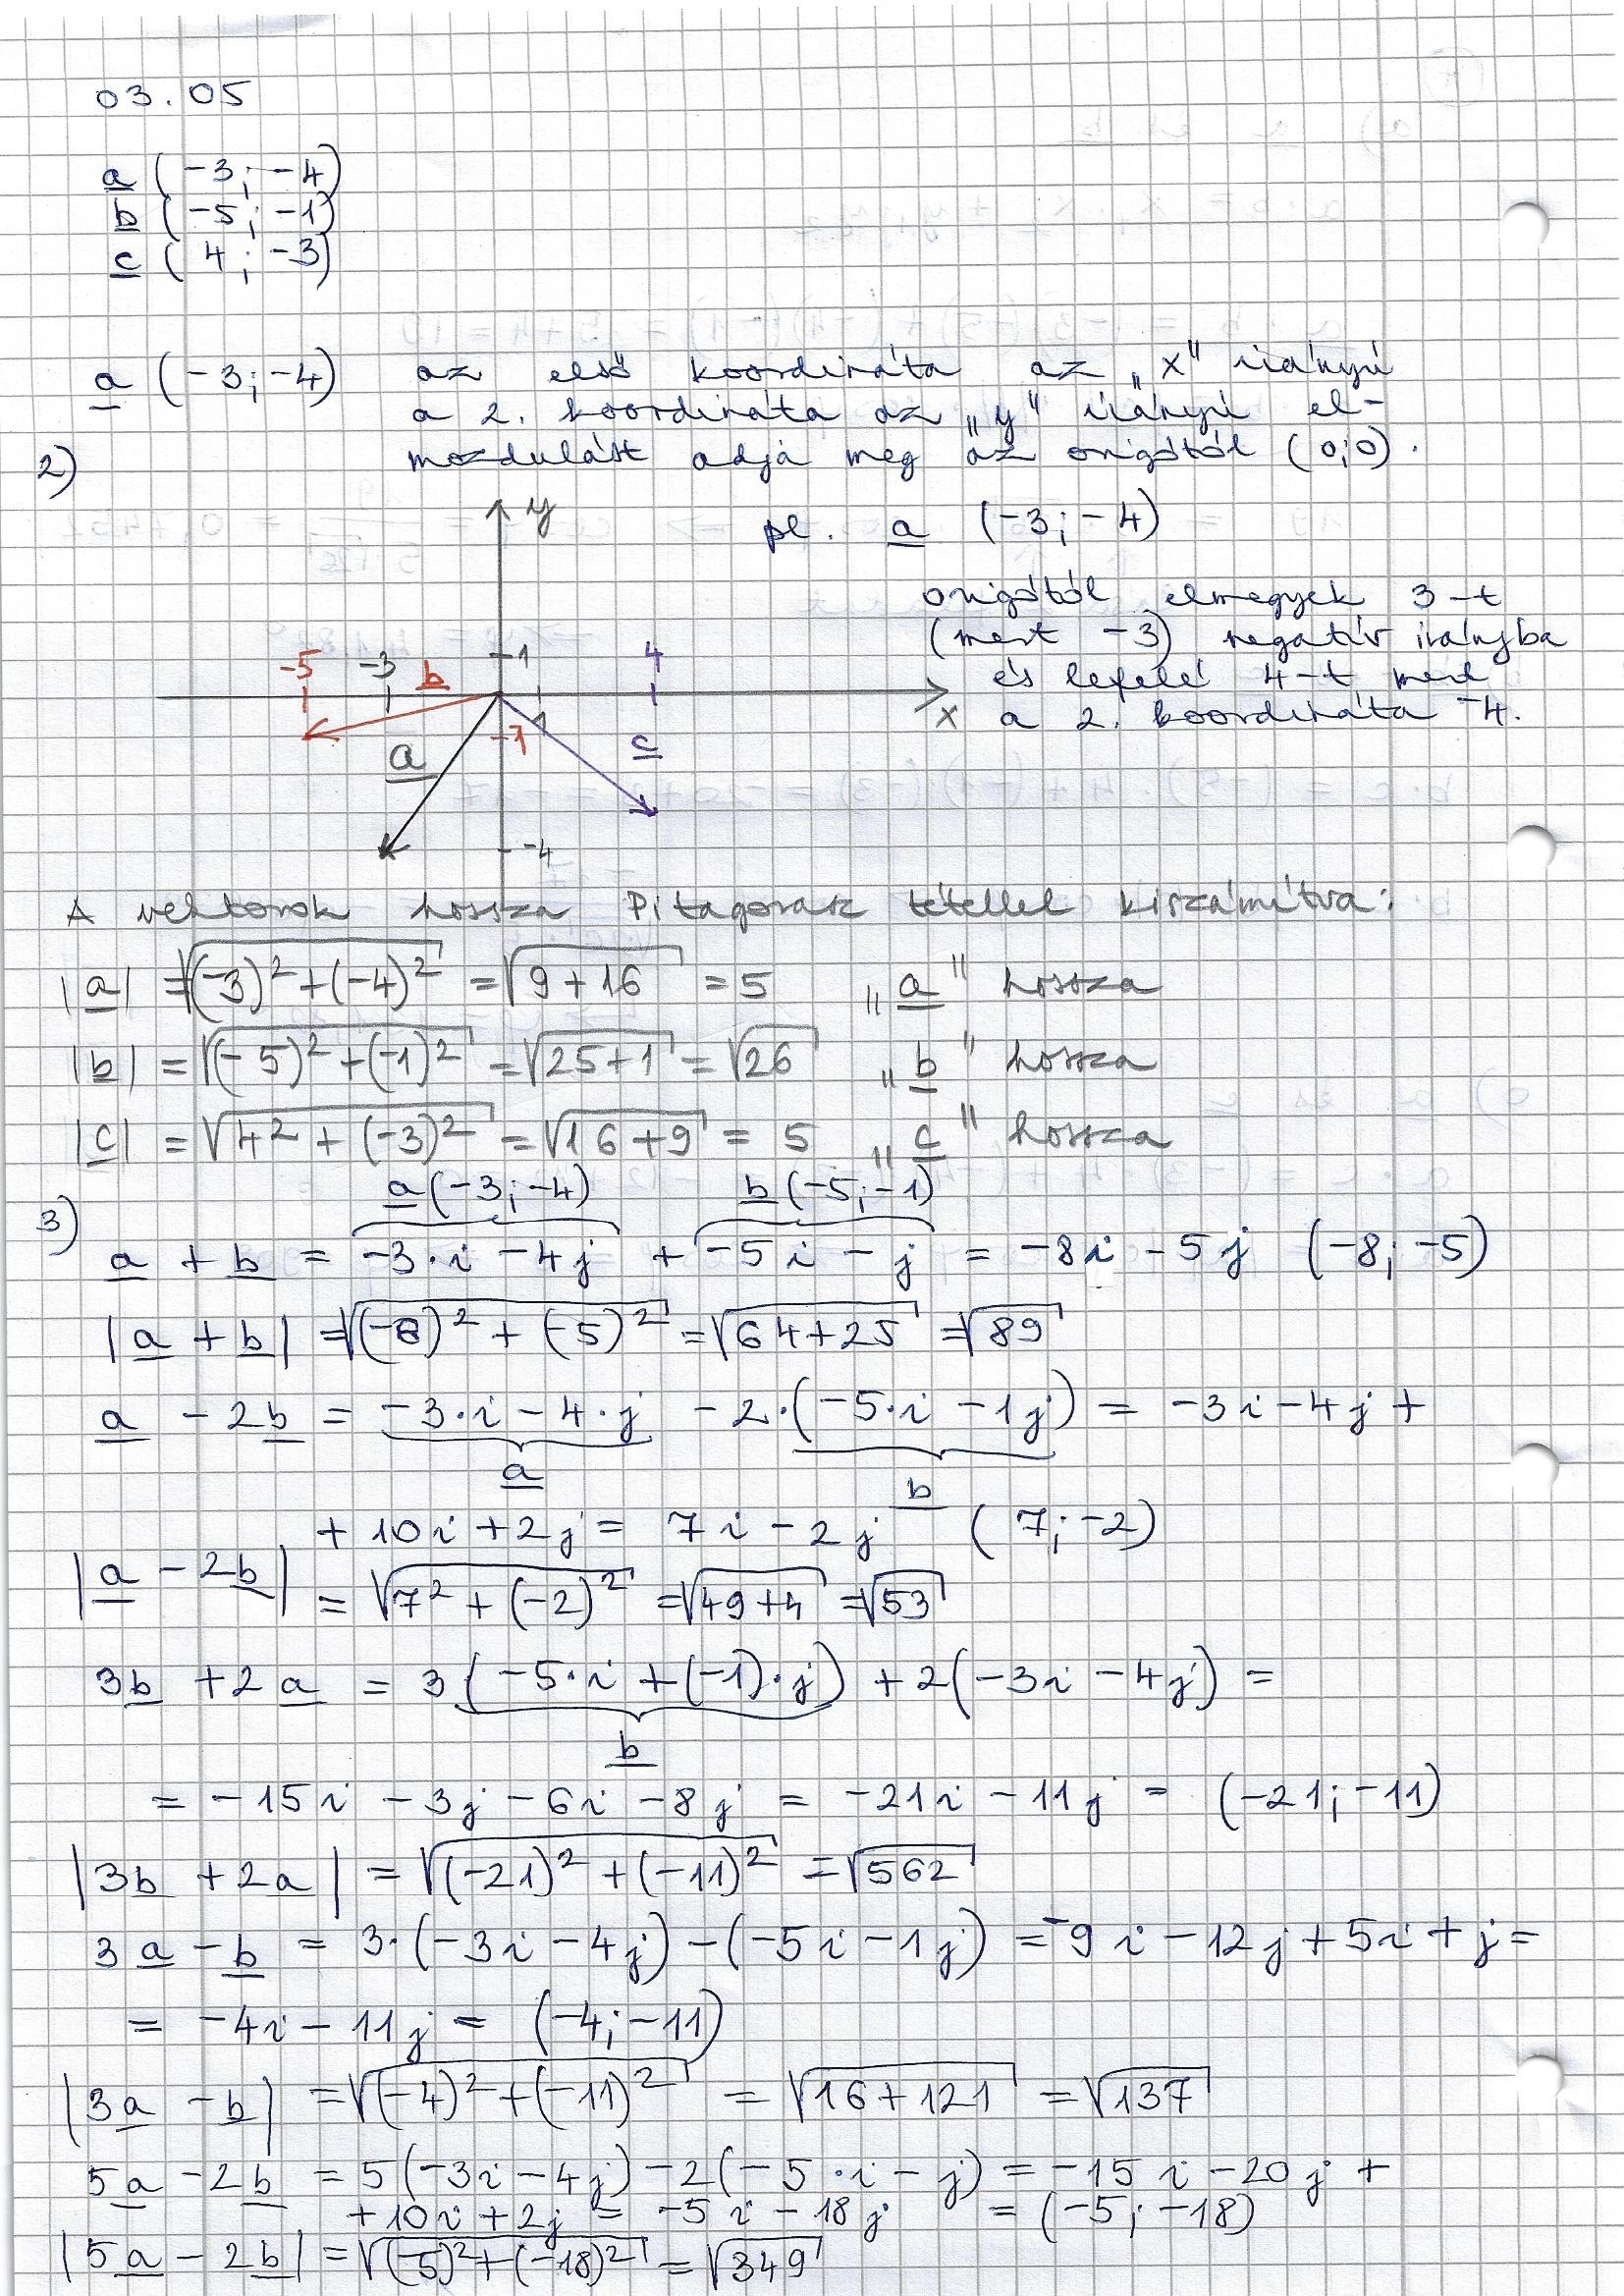 03.05
a (-3; -4)
b (-5; -1)
c (4; -3)
a (-3; -4) az első koordináta az „x" irányú
a 2. koordináta az „y" irányú el-
2) mozdulást adja meg az origótól (0;0).
y
pl. a (-3; -4)
origótól elmegyek 3-t
(mert -3) negatív irányba
és lefelé 4-t mert
a 2. koordináta -4.
-5 -3 b 1 4
x
1
-1
a
c
-4
A vektorok hossza Pitagorasz tétellel kiszámítva:
|a| = √((-3)² + (-4)²) = √(9+16) = 5 „a" hossza
|b| = √((-5)² + (-1)²) = √(25+1) = √26 „b" hossza
|c| = √(4² + (-3)²) = √(16+9) = 5 „c" hossza
a (-3; -4) b (-5; -1)
3) a + b = -3·i - 4j + -5i - j = -8i - 5j (-8; -5)
|a + b| = √((-8)² + (-5)²) = √(64+25) = √89
a - 2b = -3·i - 4·j - 2·(-5·i - 1j) = -3i - 4j +
a b
+ 10i + 2j = 7i - 2j (7; -2)
|a - 2b| = √(7² + (-2)²) = √(49+4) = √53
3b + 2a = 3(-5·i + (-1)·j) + 2(-3i - 4j) =
b
= -15i - 3j - 6i - 8j = -21i - 11j = (-21; -11)
|3b + 2a| = √((-21)² + (-11)²) = √562
3a - b = 3·(-3i - 4j) - (-5i - 1j) = -9i - 12j + 5i + j =
= -4i - 11j = (-4; -11)
|3a - b| = √((-4)² + (-11)²) = √(16+121) = √137
5a - 2b = 5(-3i - 4j) - 2(-5·i - j) = -15i - 20j +
+ 10i + 2j = -5i - 18j = (-5; -18)
|5a - 2b| = √((-5)² + (-18)²) = √349